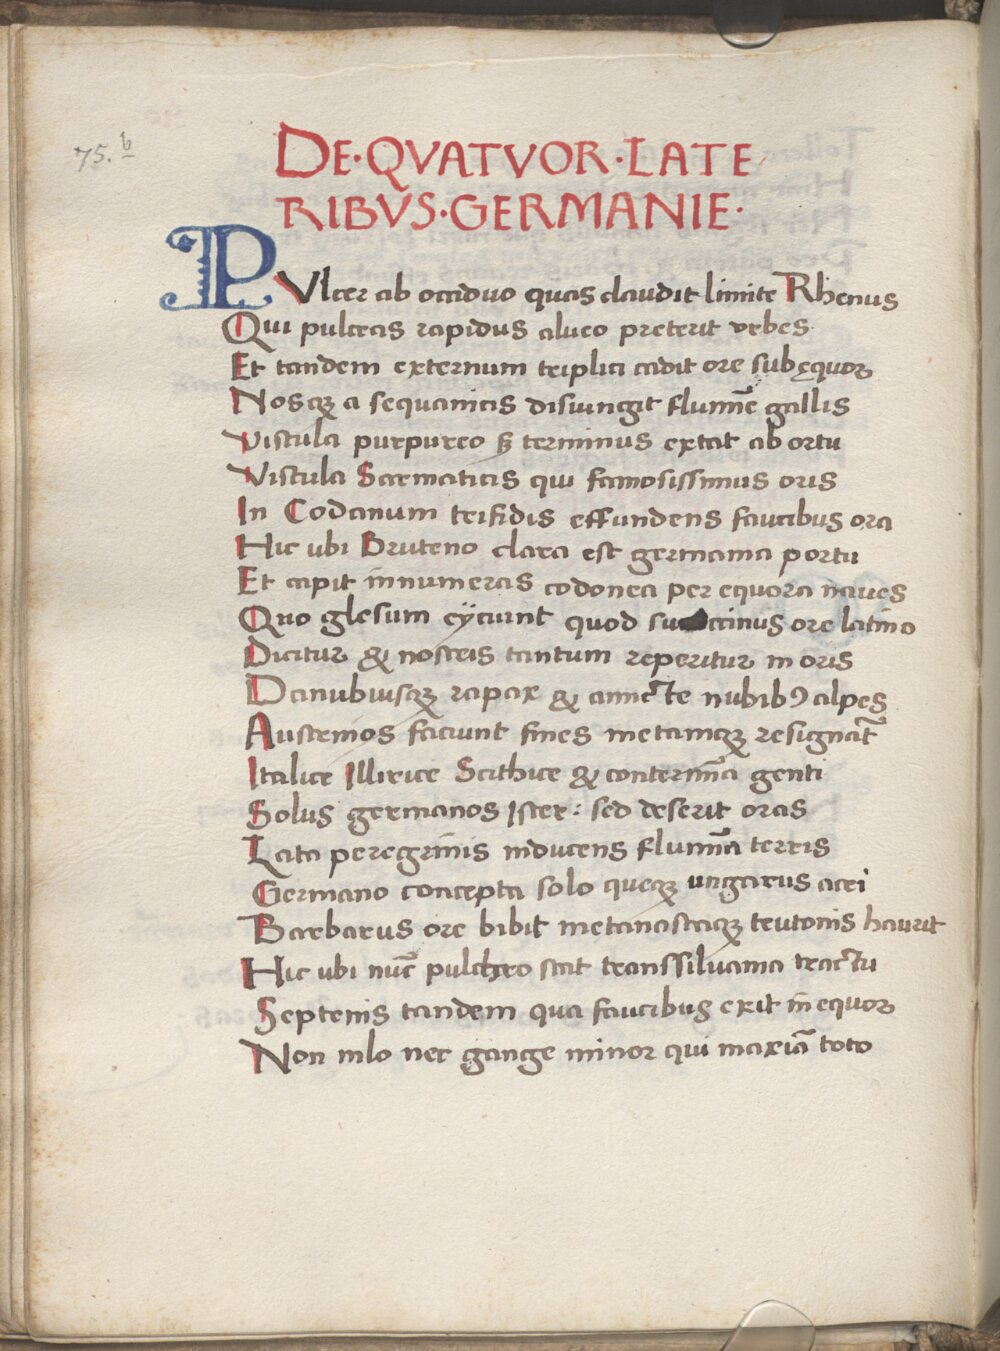 75.b
DE·QVATVOR·LATE
RIBVS·GERMANIE·
PVlcer ab occiduo quas claudit limite Rhenus
Qui pulcras rapidus alueo preterit vrbes
Et tandem externum triplici cadit ore sub ęquor
Nosqꝫ a sequanicis disiungit flumīe gallis
Vistula purpureo sꝫ terminus extat ab ortu
Vistula Sarmaticis qui famosissimus oris
In Codanum trifidis effundens faucibus ora
Hic ubi Bruteno clara est germania portu
Et capit innumeras codonea per equora naues
Quo glesum eyciunt quod succinus ore latino
Dicitur & nostris tantum reperitur in oris
Danubiusqꝫ rapax & amicte nubibꝰ alpes
Austrinos faciunt fines metamqꝫ resignāt
Italice Illirice Scithice & contermīa genti
Solus germanos Ister: sed deserit oras
Lata peregrinis inducens flumīa terris
Germano concepta solo queqꝫ ungarus acri
Barbarus ore bibit metanastaqꝫ teutonis haurit
Hic ubi nūc pulchro stat transsiluania tractu
Septenis tandem qua faucibus exit in equor
Non nilo nec gange minor qui maxīa toto